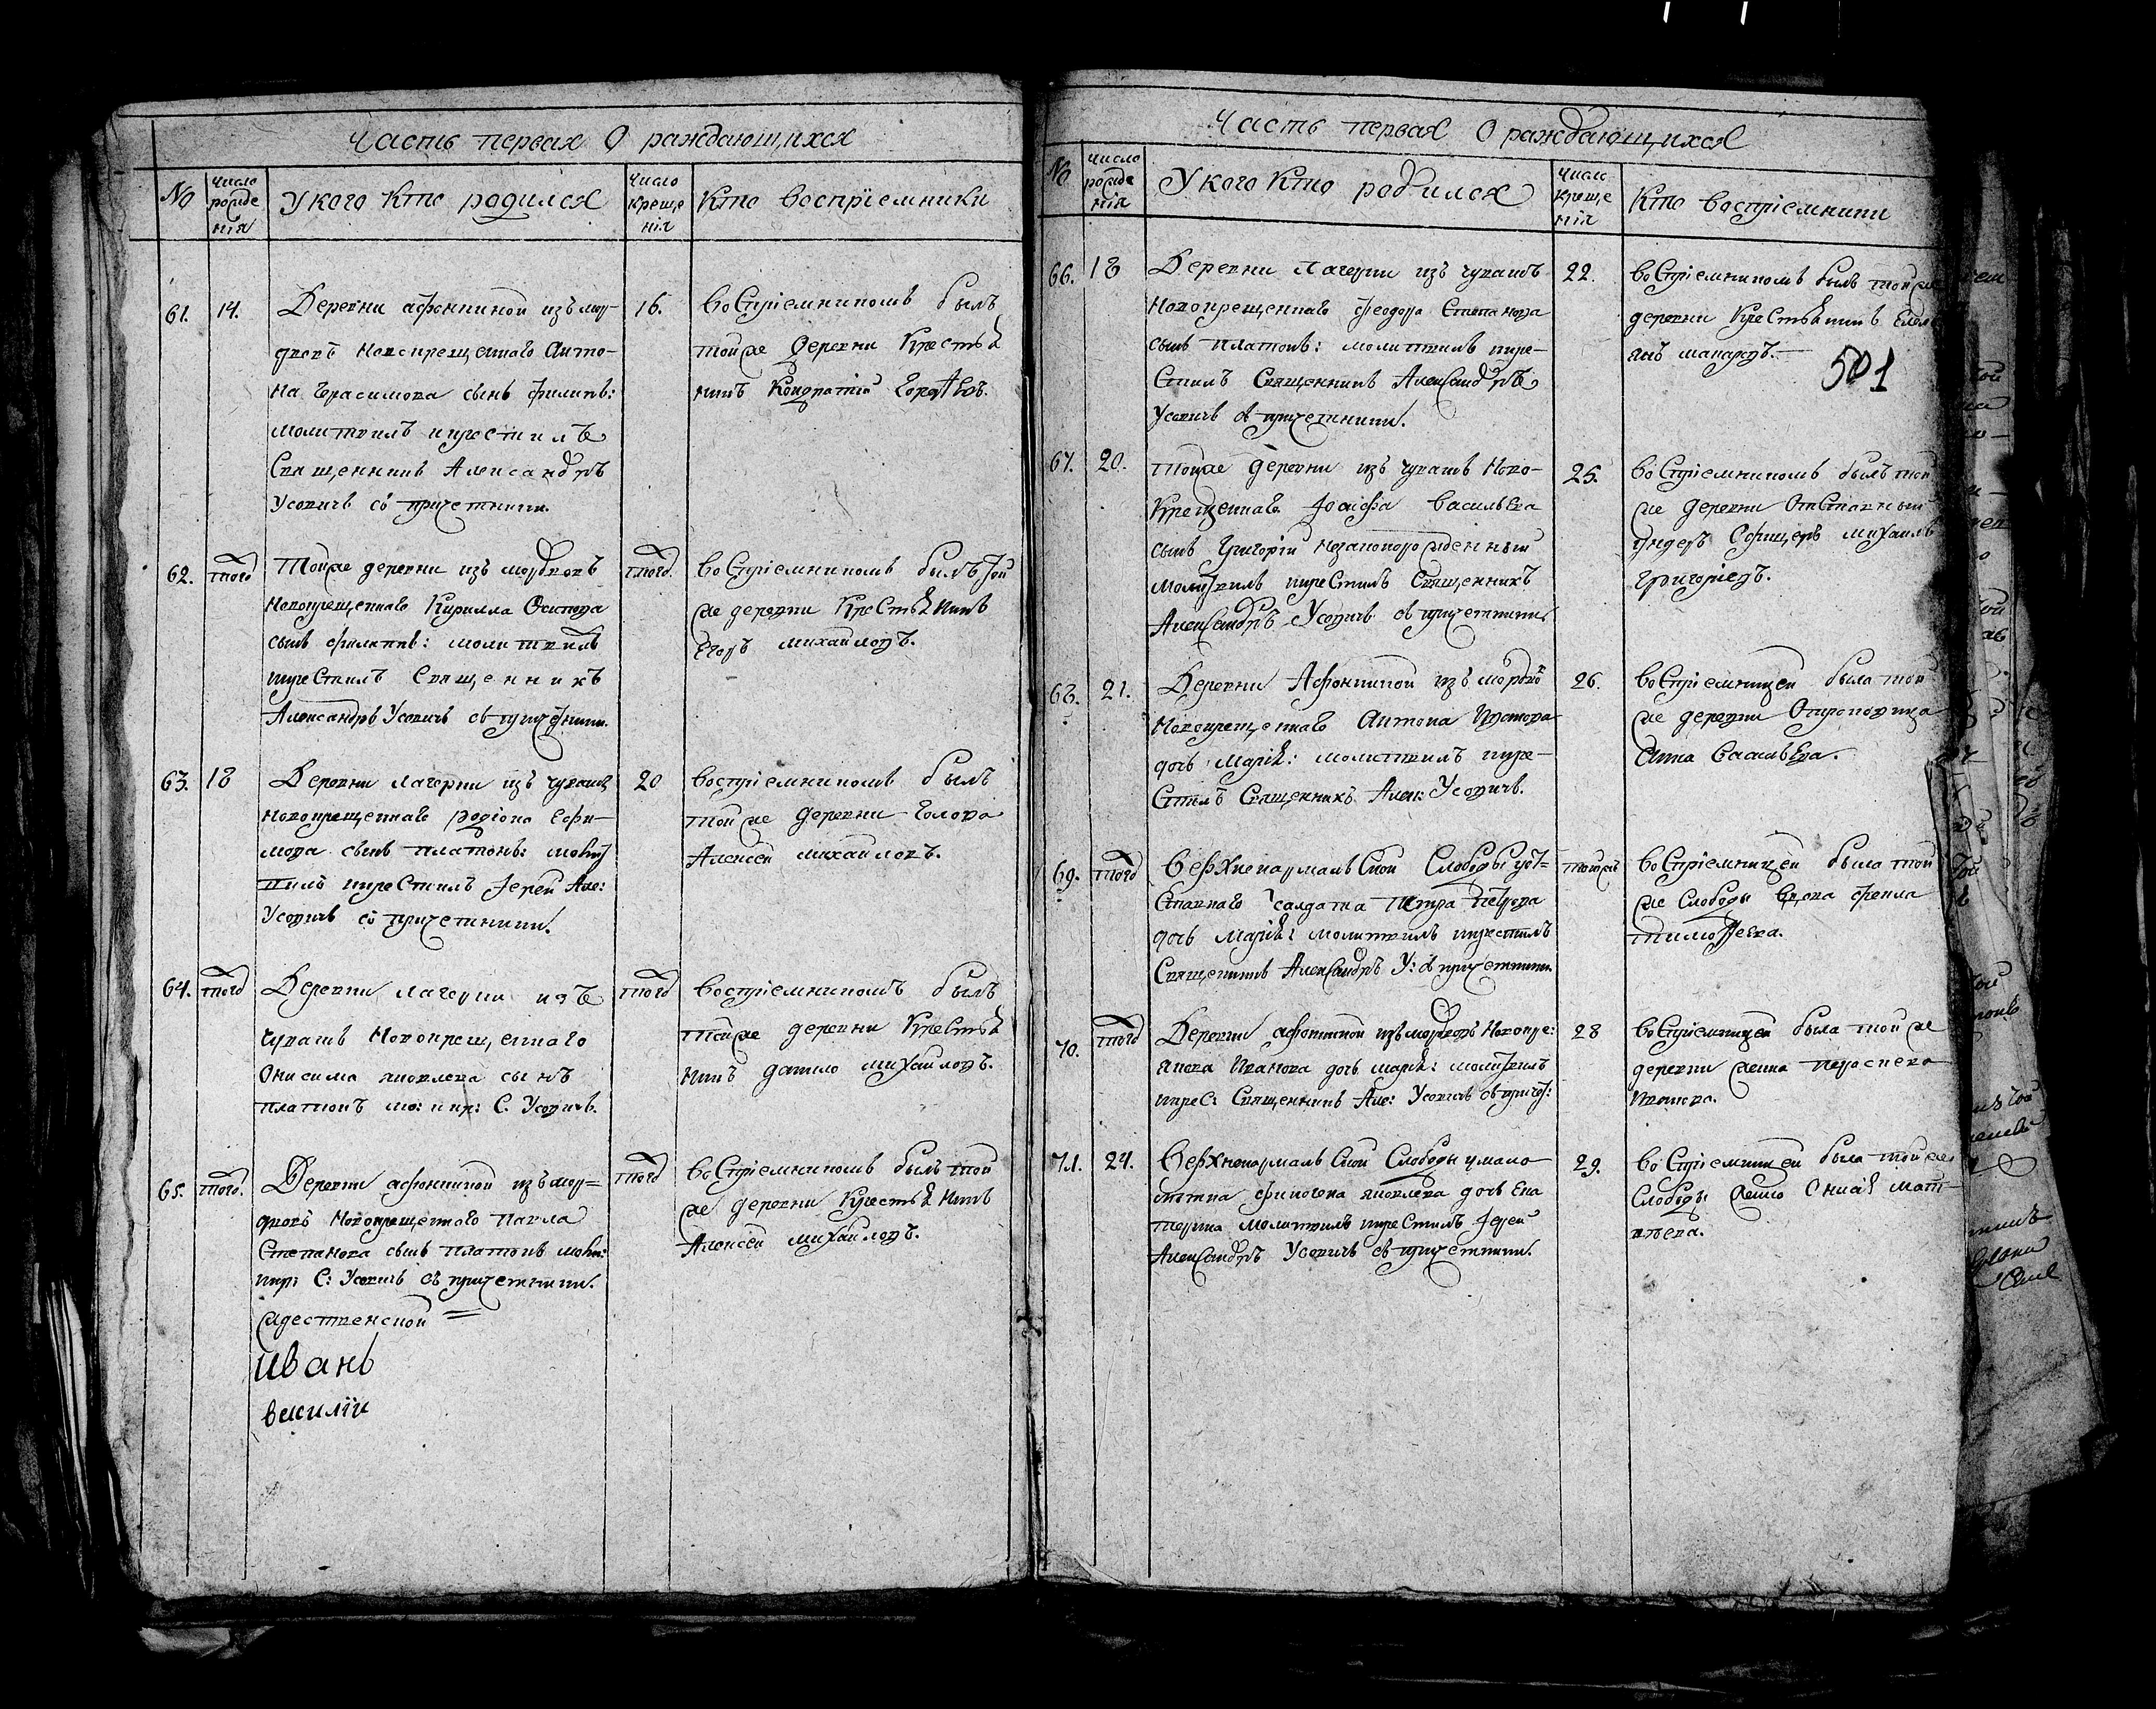 Часть первая О раждающихся
№
число рожде нія
У кого кто родился
число креще нія
Кто воспріемники
61.
14.
Деревни афонкиной изъ мор-
двовъ новокрещеннаго Анто-
на Герасимова сынъ филипъ:
молитвилъ и крестилъ
Священникъ Александръ
Усовичъ съ причетники.
16.
воспріемникомъ былъ
тойже деревни Крестья
нинъ Кондратій
62.
тогд
Тойже деревни изъ мордвовъ
новокрещеннаго Кирилла Осипова
сынъ филипъ: молитвилъ
икрестилъ Священникъ
Александръ Усовичъ съ причетники.
тогд.
воспріемникомъ былъ той
же деревни Крестьянинъ
Егоръ михайловъ.
63.
18
Деревни лагерки изъ чувашъ
новокрещеннаго родіона Ефи-
мова сынъ платонъ: молит
вилъ икрестилъ Іерей Але:
Усовичъ съ причетники.
20
воспріемникомъ былъ
тойже деревни голова
Алексей михайловъ.
64.
тогд
Деревни лагерки изъ
чувашъ новокрещеннаго
Онисима яковлева сынъ
платонъ мо: и кр: С. Усовичъ.
тогд
воспріемникомъ былъ
тойже деревни Крестья
нинъ данило михайловъ.
65.
тогд.
Деревни афонкиной изъ мор=
двовъ новокрещеннаго павла
Степанова сынъ платонъ моли:
икр: С: Усовичъ съ причетники.
жественской =
иванъ
василіи
тогд
воспріемникомъ былъ той
же деревни Крестьянинъ
Алексей михайловъ.
Часть первая О раждающихся
№
число рожде нія
У кого кто родился
число креще нія
Кто воспріемники
66.
18
Деревни лагерки изъ чувашъ
новокрещеннаго феодора Степанова
сынъ платонъ: молитвилъ икре-
стилъ Священникъ Александръ
Усовичъ съ причетники.
22.
воспріемникомъ былъ тойже
деревни Крестьянинъ
янъ макаровъ.
501
67.
20.
тойже деревни изъ чувашъ ново-
крещеннаго Іосифа васильева
сынъ григорій незаконорожденный
молитвилъ икрестилъ Священникъ
Александръ Усовичъ съ причетники
25.
воспріемникомъ былъ той
же деревни отставный
ундеръ Офицеръ михаилъ
григоріевъ.
68.
21.
Деревни Афонкиной изъ мордвов
новокрещеннаго антона
дочь марія: молитвилъ икре-
стилъ Священникъ Алек: Усовичъ.
26.
воспріемницей была той
же деревни Отроковица
анна васильева.
69.
тогд
верхнекармальской Слободы уот=
ставнаго салдата петра петрова
дочь марія: молитвилъ икрестилъ
Священникъ Александръ У: съ причетники.
тойже
воспріемницей была той
же Слободы вдова фекла
тимофеева.
70.
тогд
Деревни афонкиной изъ мордвовъ новокре:
якова иванова дочь марія: молитвилъ
икрес: Священникъ Але: Усовичъ съ причет:
28
воспріемницей была тойже
деревни жена
71.
24.
верхнекармальской Слободы
яковлева дочь Ека
терина молитвилъ икрестилъ Іерей
Александръ Усовичъ съ причетники.
29.
воспріемницей была тойже
Слободы мат-
веева.